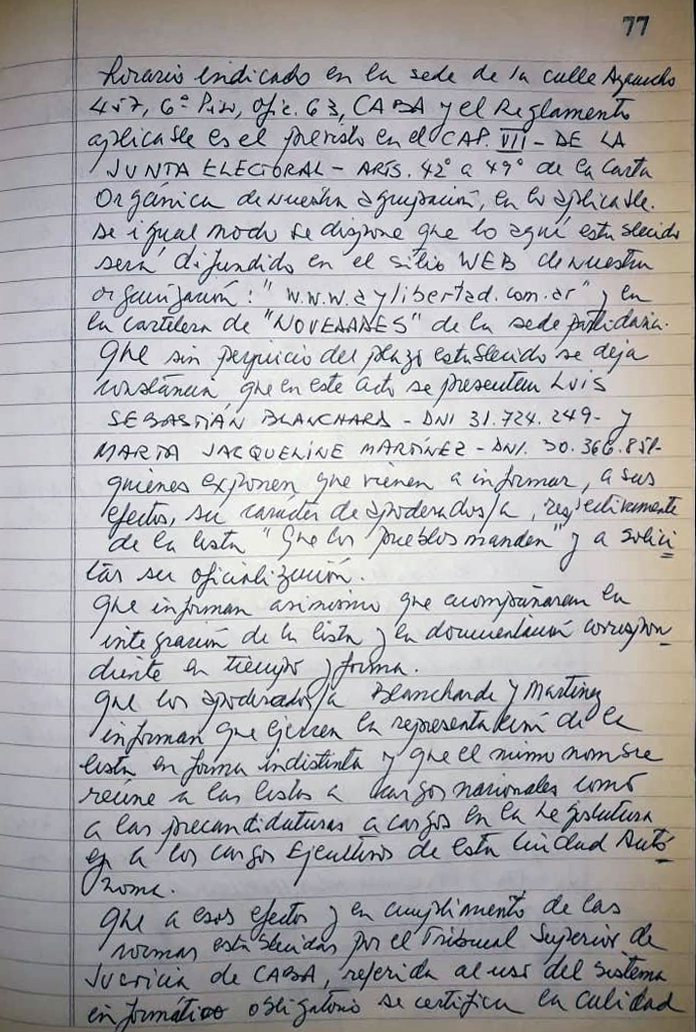 77
horario indicado en la sede de la calle Ayacucho
457, 6º Piso, Ofic. 63, CABA y el Reglamento
aplicable es el previsto en el CAP. VII - DE LA
JUNTA ELECTORAL - ARTS. 42º a 49º de la Carta
Orgánica de nuestra agrupación, en lo aplicable.
De igual modo se dispone que lo aquí establecido
será difundido en el sitio WEB de nuestra
organización: "w.w.w.aylibertad.com.ar" y en
la cartelera de "NOVEDADES" de la sede partidaria.
Que sin perjuicio del plazo establecido se deja
constancia que en este acto se presentan Luis
SEBASTIÁN BLANCHARD - DNI 31.724.249- y
MARTA JACQUELINE MARTÍNEZ - DNI. 30.366.851-
quienes exponen que vienen a informar, a sus
efectos, su carácter de apoderados/a, respectivamente
de la lista "Que los pueblos manden" y a solici
tar su oficialización.
Que informan asimismo que acompañaran la
integración de la lista y la documentación correspon
diente en tiempo y forma.
Que los apoderados/a Blancharde y Martinez
informan que ejercen la representación de la
lista en forma indistinta y que el mismo nombre
reúne a las listas a cargos nacionales como
a las precandidaturas a cargos en la Legislatura
a los cargos Ejecutivos de esta Ciudad Autó
noma.
Que a esos efectos y en cumplimento de las
normas establecidas por el Tribunal Superior de
Justicia de CABA, referida al uso del sistema
informático obligatorio se certifica la calidad